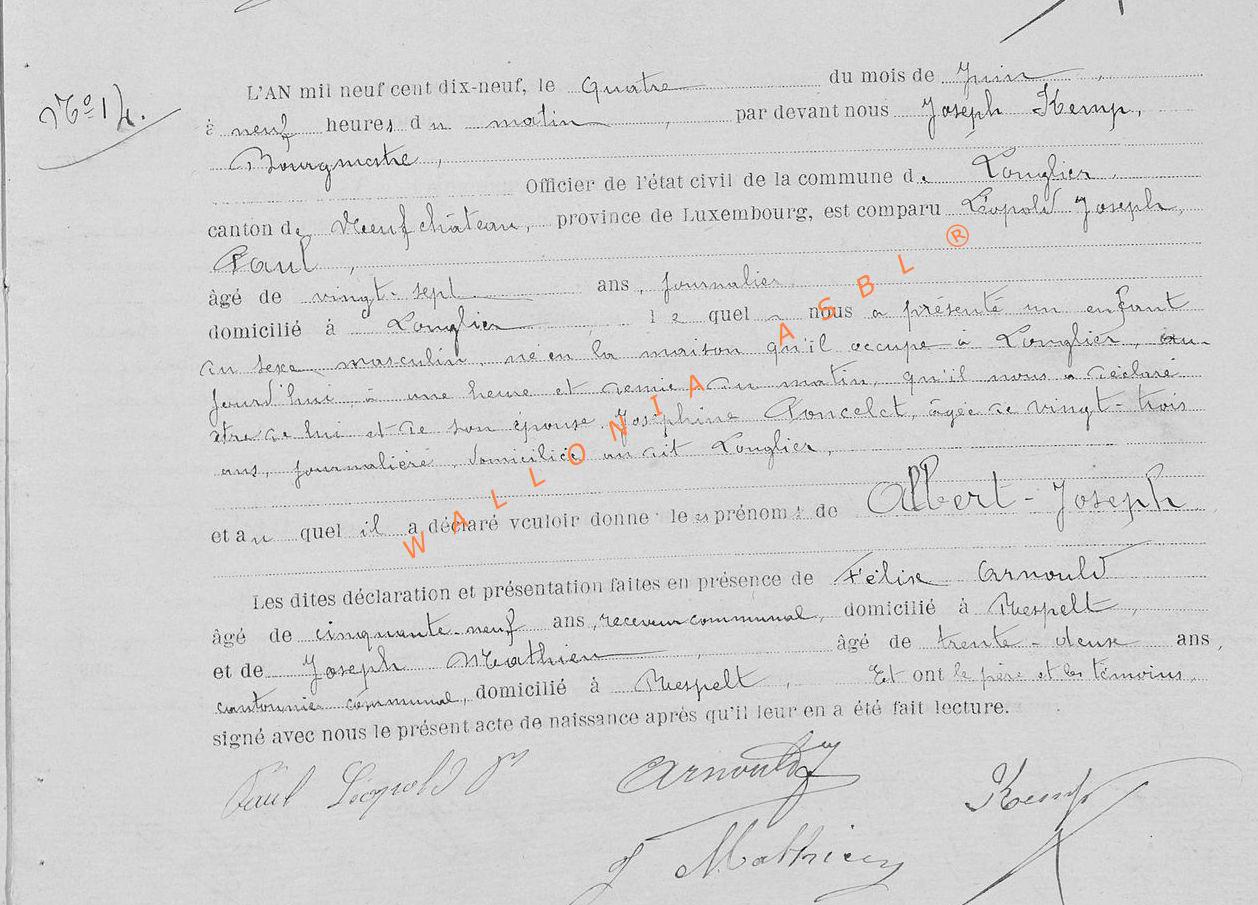 N° 14.
L'AN mil neuf cent dix-neuf, le quatre du mois de Juin,
à neuf heures du matin, par devant nous Joseph Kemp,
Bourgmestre,
Officier de l'état civil de la commune de Longlier
canton de Neufchâteau, province de Luxembourg, est comparu Léopold Joseph
Paul,
âgé de vingt-sept ans, journalier,
domicilié à Longlier, lequel nous a présenté un enfant
du sexe masculin, né en la maison qu'il occupe à Longlier, au-
jourd'hui, à une heure et demie du matin, qu'il nous a déclaré
être de lui et de son épouse Joséphine Poncelet, âgée de vingt-trois
ans, journalière, domiciliée au dit Longlier,
et auquel il a déclaré vouloir donner les prénoms de Albert-Joseph
Les dites déclaration et présentation faites en présence de Félix Arnould
âgé de cinquante-neuf ans, receveur communal, domicilié à Respelt,
et de Joseph Mathieu, âgé de trente-deux ans,
cantonnier communal, domicilié à Respelt, Et ont le père et les témoins,
signé avec nous le présent acte de naissance après qu'il leur en a été fait lecture.
Paul Léopold Arnould Kemp
J Mathieu
WALLONIA ASBL ®